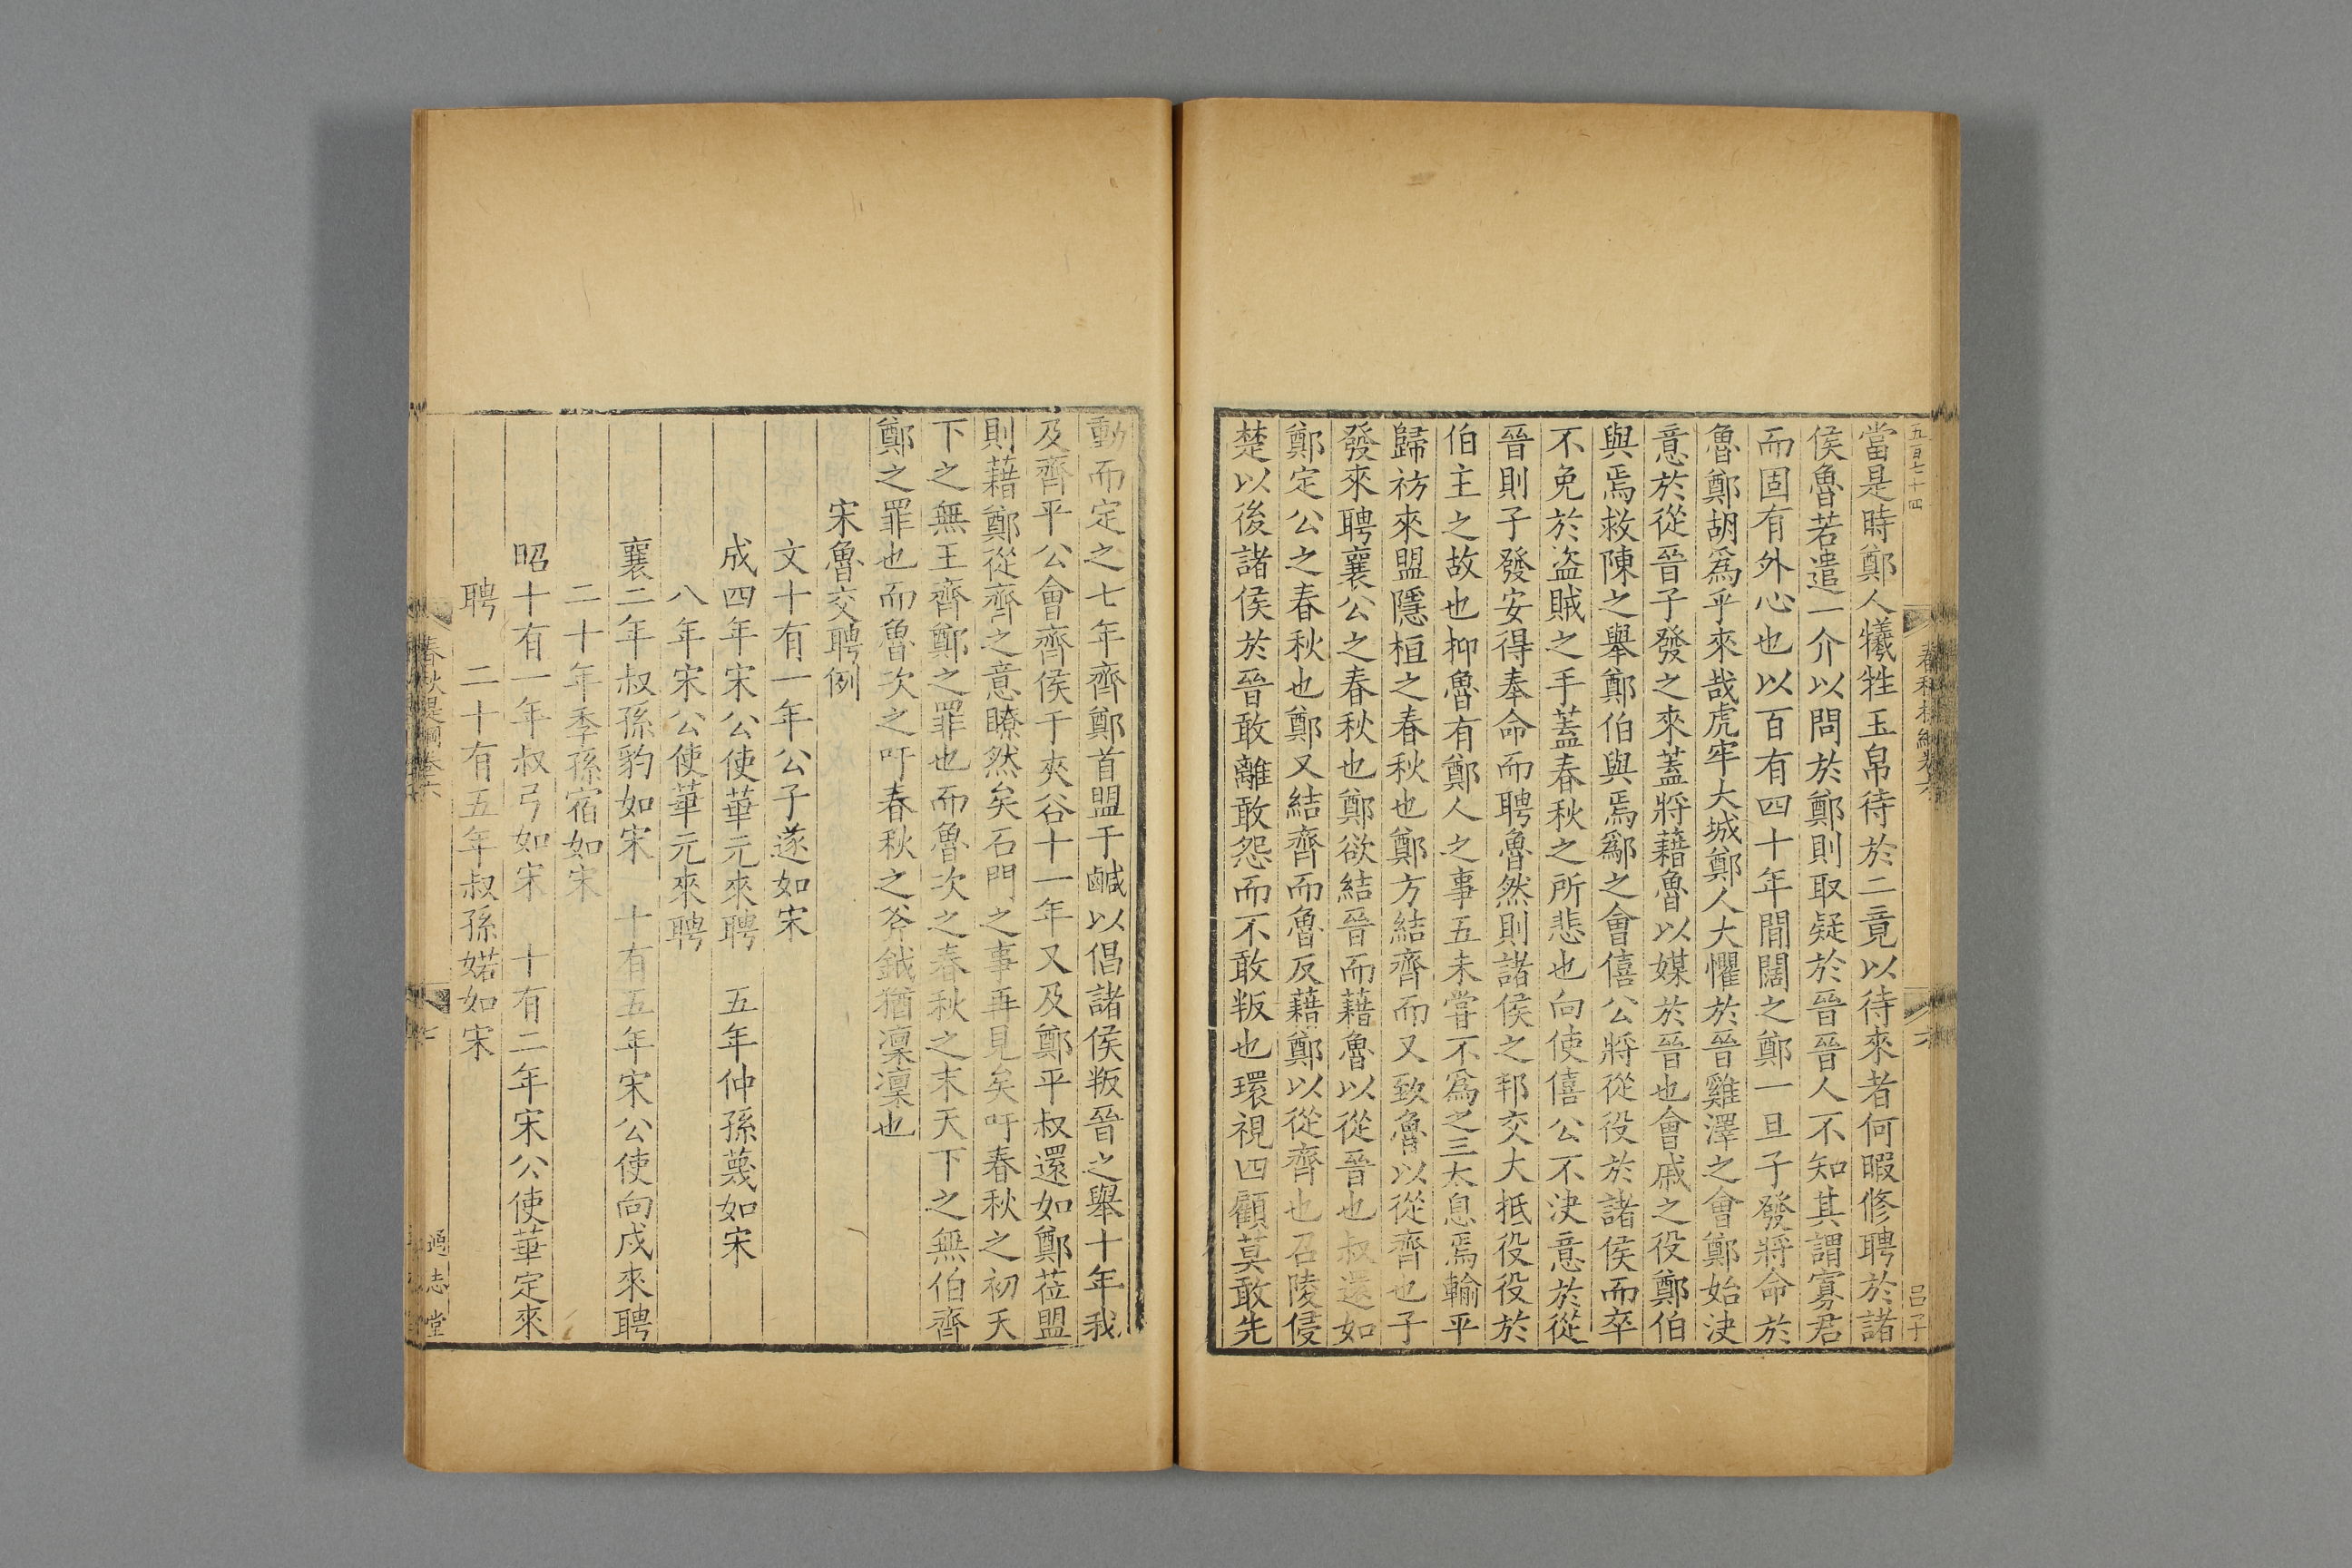 五百七十四
春秋提綱卷六
六
呂子
當是時鄭人犧牲玉帛待於二竟以待來者何暇修聘於諸
侯魯若遣一介以問於鄭則取疑於晉晉人不知其謂寡君
而固有外心也以百有四十年間闊之鄭一旦子發將命於
魯鄭胡為乎來哉虎牢大城鄭人大懼於晉雞澤之會鄭始決
意於從晉子發之來蓋將藉魯以媒於晉也會戚之役鄭伯
與焉救陳之舉鄭伯與焉鄬之會僖公將從役於諸侯而卒
不免於盜賊之手蓋春秋之所悲也向使僖公不決意於從
晉則子發安得奉命而聘魯然則諸侯之邦交大抵役役於
伯主之故也抑魯有鄭人之事五未嘗不為之三太息焉輸平
歸祊來盟隱桓之春秋也鄭方結齊而又致魯以從齊也子
發來聘襄公之春秋也鄭欲結晉而藉魯以從晉也叔還如
鄭定公之春秋也鄭又結齊而魯反藉鄭以從齊也召陵侵
楚以後諸侯於晉敢離敢怨而不敢叛也環視四顧莫敢先
動而定之七年齊鄭首盟于鹹以倡諸侯叛晉之舉十年我
及齊平公會齊侯于夾谷十一年又及鄭平叔還如鄭蒞盟
則藉鄭從齊之意瞭然矣石門之事再見矣吁春秋之初天
下之無王齊鄭之罪也而魯次之春秋之末天下之無伯齊
鄭之罪也而魯次之吁春秋之斧鉞猶凜凜也
宋魯交聘例
文十有一年公子遂如宋
成四年宋公使華元來聘 五年仲孫蔑如宋
八年宋公使華元來聘
襄二年叔孫豹如宋 十有五年宋公使向戌來聘
二十年季孫宿如宋
昭十有一年叔弓如宋 十有二年宋公使華定來
聘 二十有五年叔孫婼如宋
春秋提綱卷六
七
通志堂